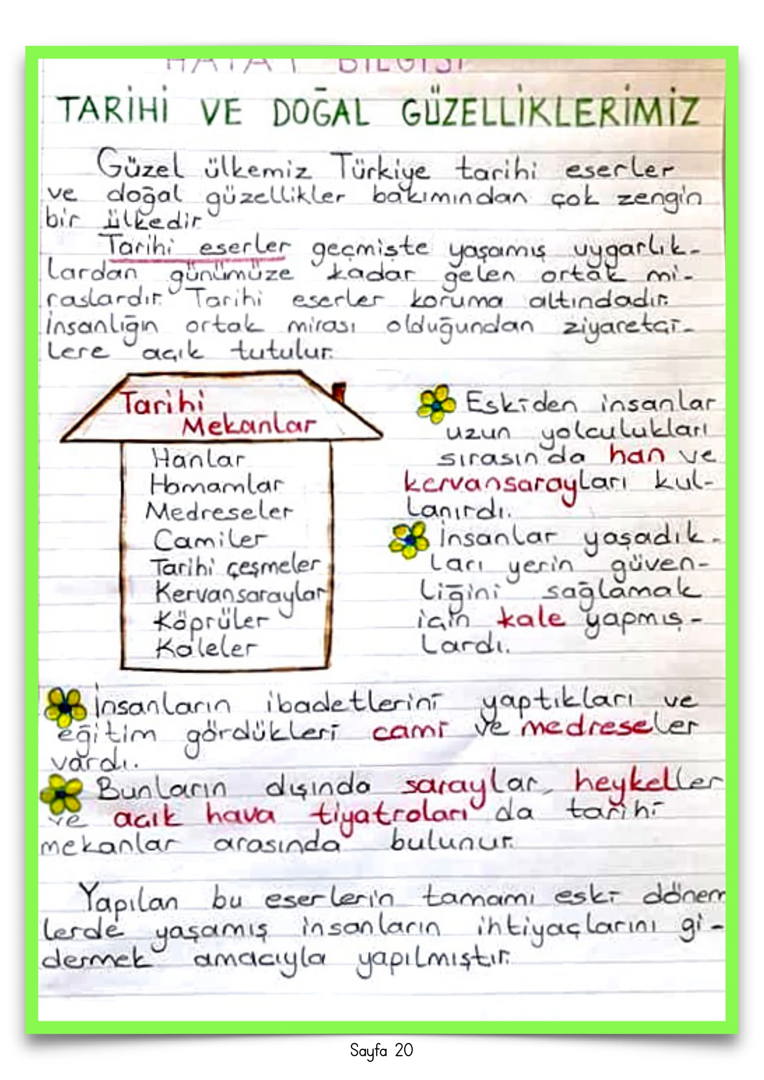 HAYAT BİLGİSİ
TARİHİ VE DOĞAL GÜZELLİKLERİMİZ
Güzel ülkemiz Türkiye tarihi eserler
ve doğal güzellikler bakımından çok zengin
bir ülkedir.
Tarihi eserler geçmişte yaşamış uygarlık-
lardan günümüze kadar gelen ortak mi-
raslardır. Tarihi eserler koruma altındadır.
İnsanlığın ortak mirası olduğundan ziyaretçi-
lere açık tutulur.
Tarihi
Mekanlar
Hanlar
Hamamlar
Medreseler
Camiler
Tarihi çeşmeler
Kervansaraylar
Köprüler
Kaleler
Eskiden insanlar
uzun yolculukları
sırasında han ve
kervansarayları kul-
lanırdı.
İnsanlar yaşadık-
ları yerin güven-
liğini sağlamak
için kale yapmış-
lardı.
İnsanların ibadetlerini yaptıkları ve
eğitim gördükleri cami ve medreseler
vardı.
Bunların dışında saraylar, heykeller
ve açık hava tiyatroları da tarihi
mekanlar arasında bulunur.
Yapılan bu eserlerin tamamı eski dönem
lerde yaşamış insanların ihtiyaçlarını gi-
dermek amacıyla yapılmıştır.
Sayfa 20